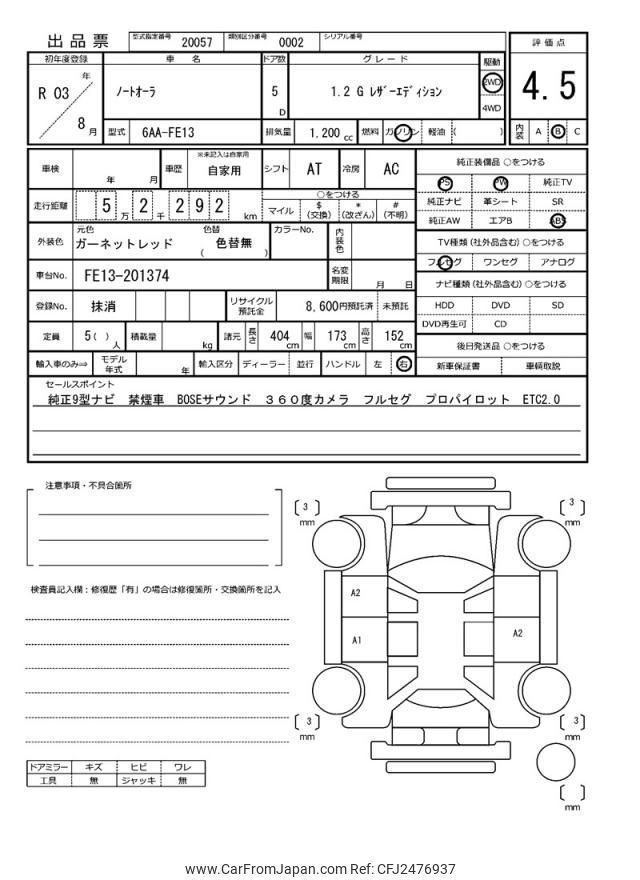 出品票 型式指定番号 20057 類別区分番号 0002 シリアル番号
評価点
4.5
内装 A B C
初年度登録 車名 ドア数 グレード 駆動
R 03 年 8 月
ノートオーラ 5 D 1.2 G レザーエディション 2WD 4WD
型式 6AA-FE13 排気量 1.200 cc 燃料 ガソリン 軽油 ( )
車検 年 月 車歴 ※未記入は自家用 自家用 シフト AT 冷房 AC
走行距離 5 万 2 千 2 9 2 km
○をつける
マイル $ (交換) * (改ざん) # (不明)
外装色 元色 ガーネットレッド 色替 色替無 ( ) カラーNo. 内装色
車台No. FE13-201374 名変期限 月 日
登録No. 抹消 リサイクル預託金 8,600円預託済 未預託
定員 5( ) 人 積載量 kg 諸元 長さ 404 cm 幅 173 cm 高さ 152 cm
輸入車のみ⇒ モデル年式 年 輸入区分 ディーラー 並行 ハンドル 左 右
純正装備品 ○をつける
PS PW 純正TV
純正ナビ 革シート SR
純正AW エアB ABS
TV種類 (社外品含む) ○をつける
フルセグ ワンセグ アナログ
ナビ種類 (社外品含む) ○をつける
HDD DVD SD
DVD再生可 CD
後日発送品 ○をつける
新車保証書 車輌取説
セールスポイント
純正9型ナビ 禁煙車 BOSEサウンド 360度カメラ フルセグ プロパイロット ETC2.0
注意事項・不具合箇所
検査員記入欄：修復歴「有」の場合は修復箇所・交換箇所を記入
ドアミラー キズ ヒビ ワレ
工具 無 ジャッキ 無
[ 3 ] mm
[ 3 ] mm
A2
A1
A2
[ 3 ] mm
[ 3 ] mm
[ ] mm
www.CarFromJapan.com Ref: CFJ2476937